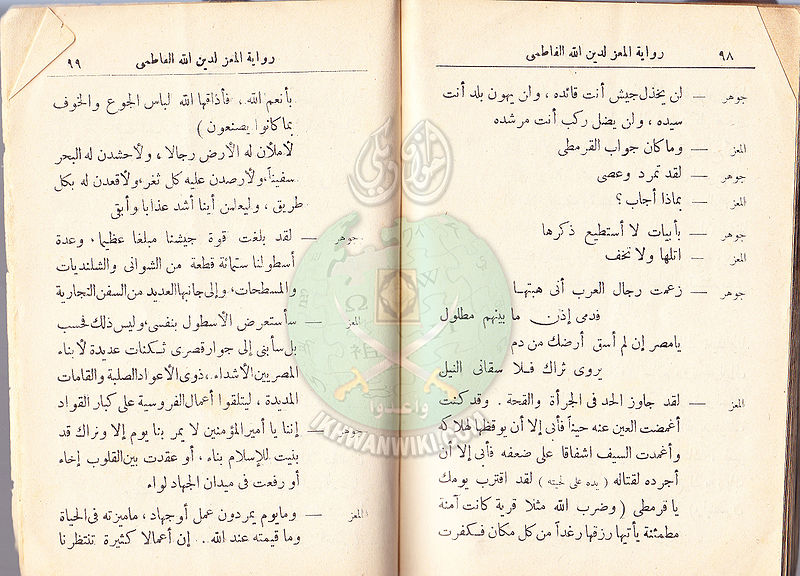 رواية المعز لدين الله الفاطمى ٩٨
جوهر — لن يخذل جيش أنت قائده ، ولن يهون بلد أنت
سيده ، ولن يضل ركب أنت مرشده
المعز — وما كان جواب القرمطى
جوهر — لقد تمرد وعصى
المعز — بماذا أجاب ؟
جوهر — بأبيات لا أستطيع ذكرها
المعز — اتلها ولا تخف
جوهر — زعمت رجال العرب أنى هبتهـا
فدمى إذن ما بينهم مطلول
يا مصر إن لم أسق أرضك من دم
يروى ثراك فـلا سقانى النيل
المعز — لقد جاوز الحد فى الجرأة والقحة . وقد كنت
أغمضت العين عنه حيناً فأبى إلا أن يوقظها لهلاكه
وأغمدت السيف اشفاقا على ضعفه فأبى إلا أن
أجرده لقتاله ( يده على لحيته ) لقد اقترب يومك
يا قرمطى ( وضرب الله مثلا قرية كانت آمنة
مطمئنة يأتيها رزقها رغداً من كل مكان فكفرت
رواية المعز لدين الله الفاطمى ٩٩
بأنعم الله ، فأذاقها الله لباس الجوع والخوف
بما كانوا يصنعون )
لأملأن له الأرض رجالا ، ولأحشدن له البحر
سفيناً ، ولأرصدن عليه كل ثغر ، ولأقعدن له بكل
طريق ، وليعلمن أينا أشد عذابا وأبقى
جوهر — لقد بلغت قوة جيشنا مبلغا عظيما ، وعدة
أسطولنا ستمائة قطعة من الشوانى والشلنديات
والمسطحات ، وإلى جانبها العديد من السفن التجارية
المعز — سأستعرض الأسطول بنفسى ، وليس ذلك فحسب
بل سأبنى إلى جوار قصرى ثـكنات عديدة لأبناء
المصريين الأشداء ، ذوى الأعواد الصلبة والقامات
المديدة ، ليتلقوا أعمال الفروسية على كبار القواد
جوهر — إننا يا أمير المؤمنين لا يمر بنا يوم إلا ونراك قد
بنيت للإسلام بناء ، أو عقدت بين القلوب إخاء
أو رفعت فى ميدان الجهاد لواء
المعز — وما يوم يمر دون عمل أو جهاد ، ما ميزته فى الحياة
وما قيمته عند الله .. إن أعمالا كثيرة تنتظرنا
واعدوا
IKHWANWIKI.COM